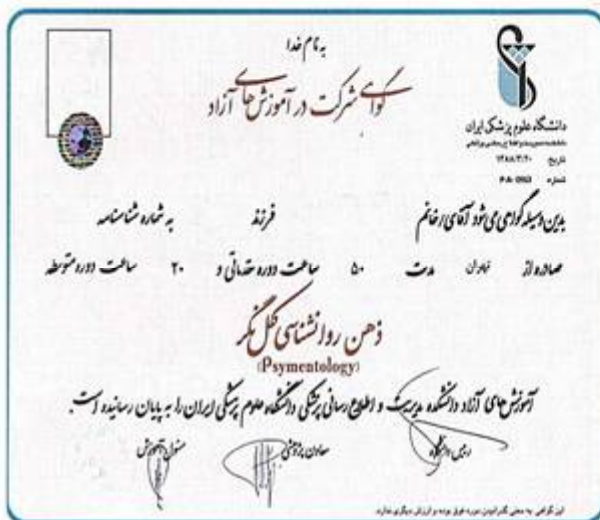 بنام خدا
گواهی شرکت در آموزش‌های آزاد
دانشگاه علوم پزشکی ایران
تاریخ ۱۳۸۸/۳/۲۰
شماره
بدین وسیله گواهی می شود آقای / خانم فرزند به شماره شناسنامه
صادره از تهران مدت ۵۰ ساعت دوره مقدماتی و ۲۰ ساعت دوره متوسطه
ذهن روانشناسی کل نگر
(Psymentology)
آموزش‌های آزاد دانشکده مدیریت و اطلاع رسانی پزشکی دانشگاه علوم پزشکی ایران را به پایان رسانیده است.
رئیس دانشکده معاون پژوهشی مسئول آموزش
این گواهی به معنی گذراندن دوره فوق بوده و ارزش دیگری ندارد.